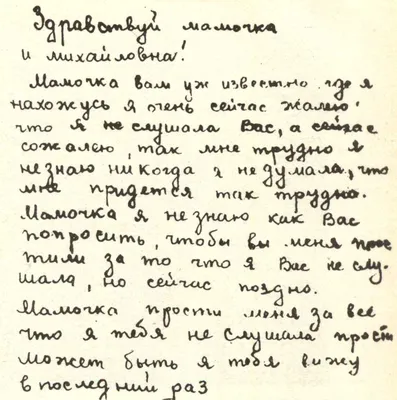 Здравствуй мамочка
и михайловна!
Мамочка вам уж известно где я
нахожусь я очень сейчас жалею
что я не слушала Вас, а сейчас
сожалею, так мне трудно я
не знаю никогда я не думала, что
мне придется так трудно.
Мамочка я не знаю как Вас
попросить, чтобы вы меня прос
тили за то что я Вас не слу-
шала, но сейчас поздно.
Мамочка прости меня за всё
что я тебя не слушала прости
может быть я тебя вижу
в последний раз